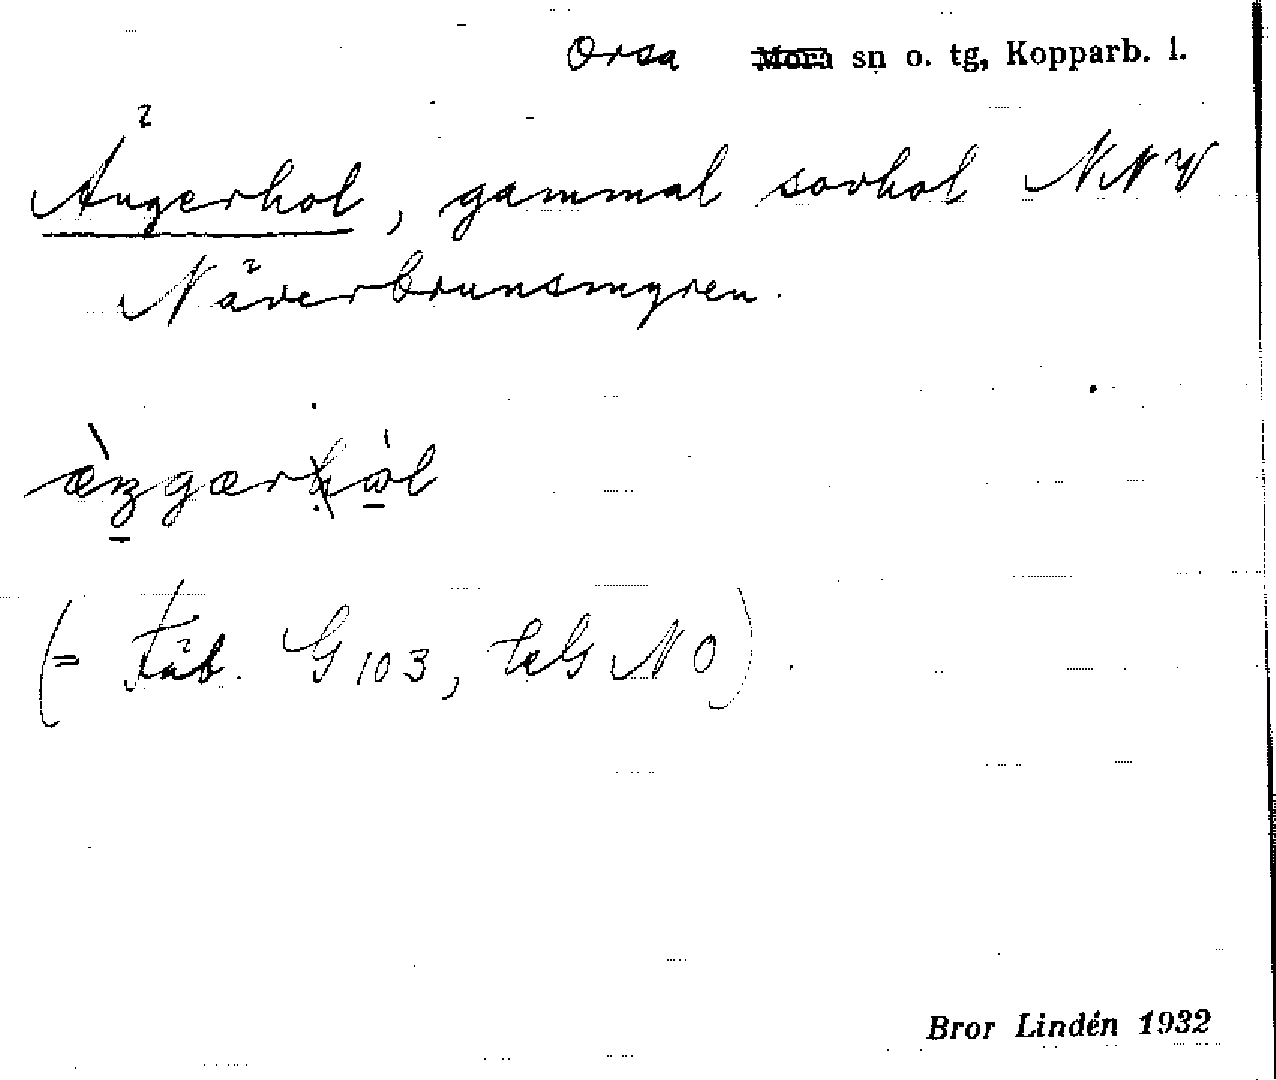 Orsa Mora sn o. tg, Kopparb. l.
Ängerhol, gammal sovhol NNV
Näverbrunsmyren.
(= Fäb. G 103, NO).
Bror Lindén 1932